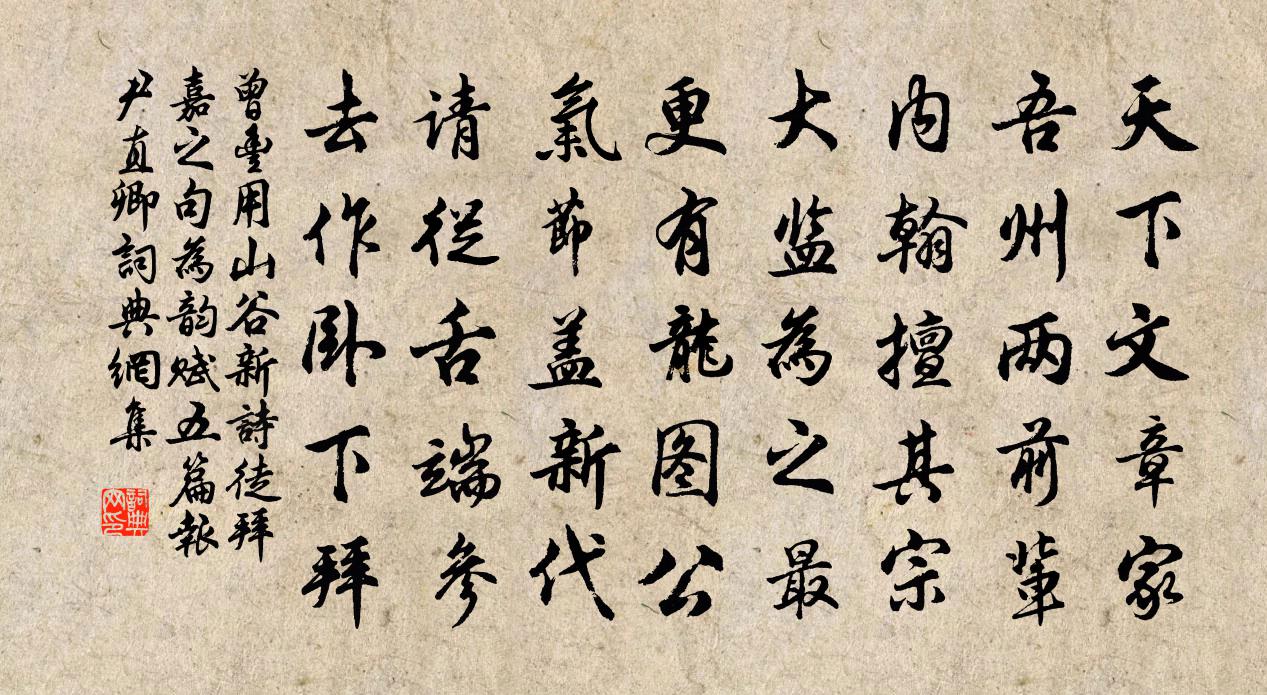 天下文章家
吾州两前輩
内翰擅其宗
大監為之最
更有龍图公
氣節盖新代
请從舌端參
去作卧下拜
曾豊用山谷新詩徒拜
嘉之句為韵赋五篇報
尹直卿詞典網集
詞典
网印